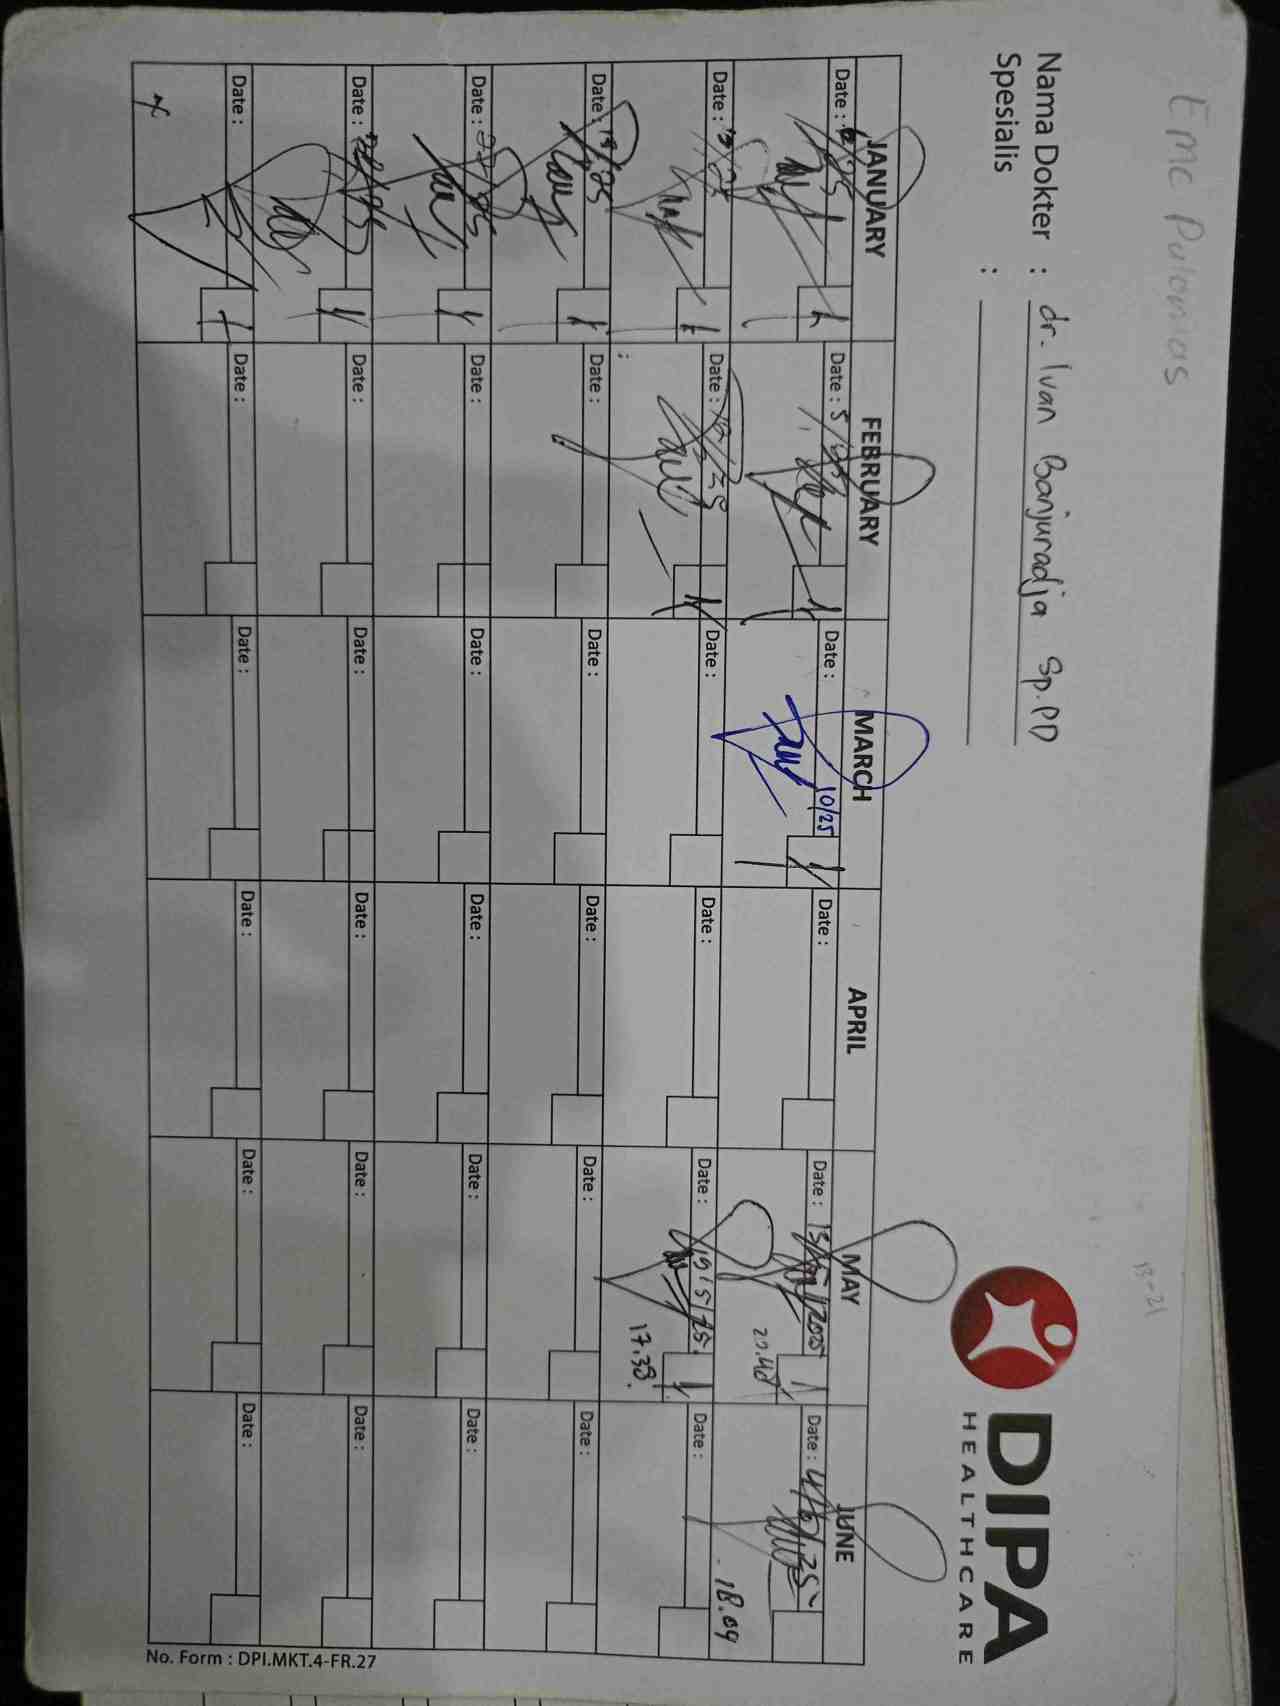 EMC Pulomas
13-21
DIPA
HEALTHCARE
Nama Dokter : dr. Ivan Banjuradja Sp.PD
Spesialis :
JANUARY FEBRUARY MARCH APRIL MAY JUNE
Date : 6/25 Date : 5/25 Date : 10/25 Date : Date : 13/5/2025 Date : 4/6/25
20.48 18.09
Date : 13/25 Date : 12/25 Date : Date : Date : 19/5/25. Date :
17.38.
Date : 15/25 Date : Date : Date : Date : Date :
Date : 22/25 Date : Date : Date : Date : Date :
Date : 28/25 Date : Date : Date : Date : Date :
Date : Date : Date : Date : Date : Date :
No. Form : DPI.MKT.4-FR.27